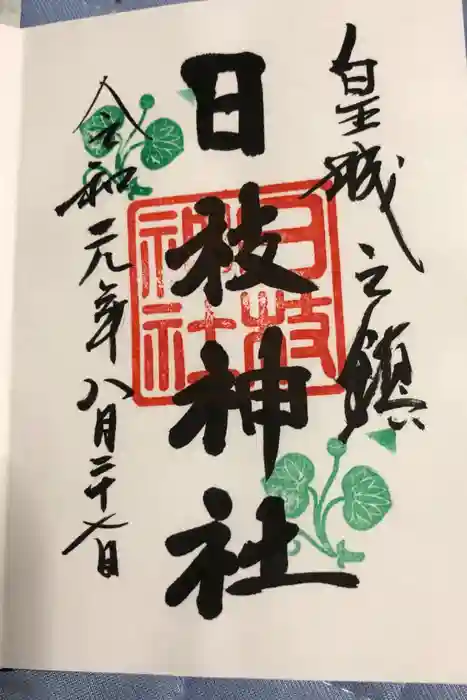 皇城之鎮
日枝神社
日枝神社
令和元年八月二十七日